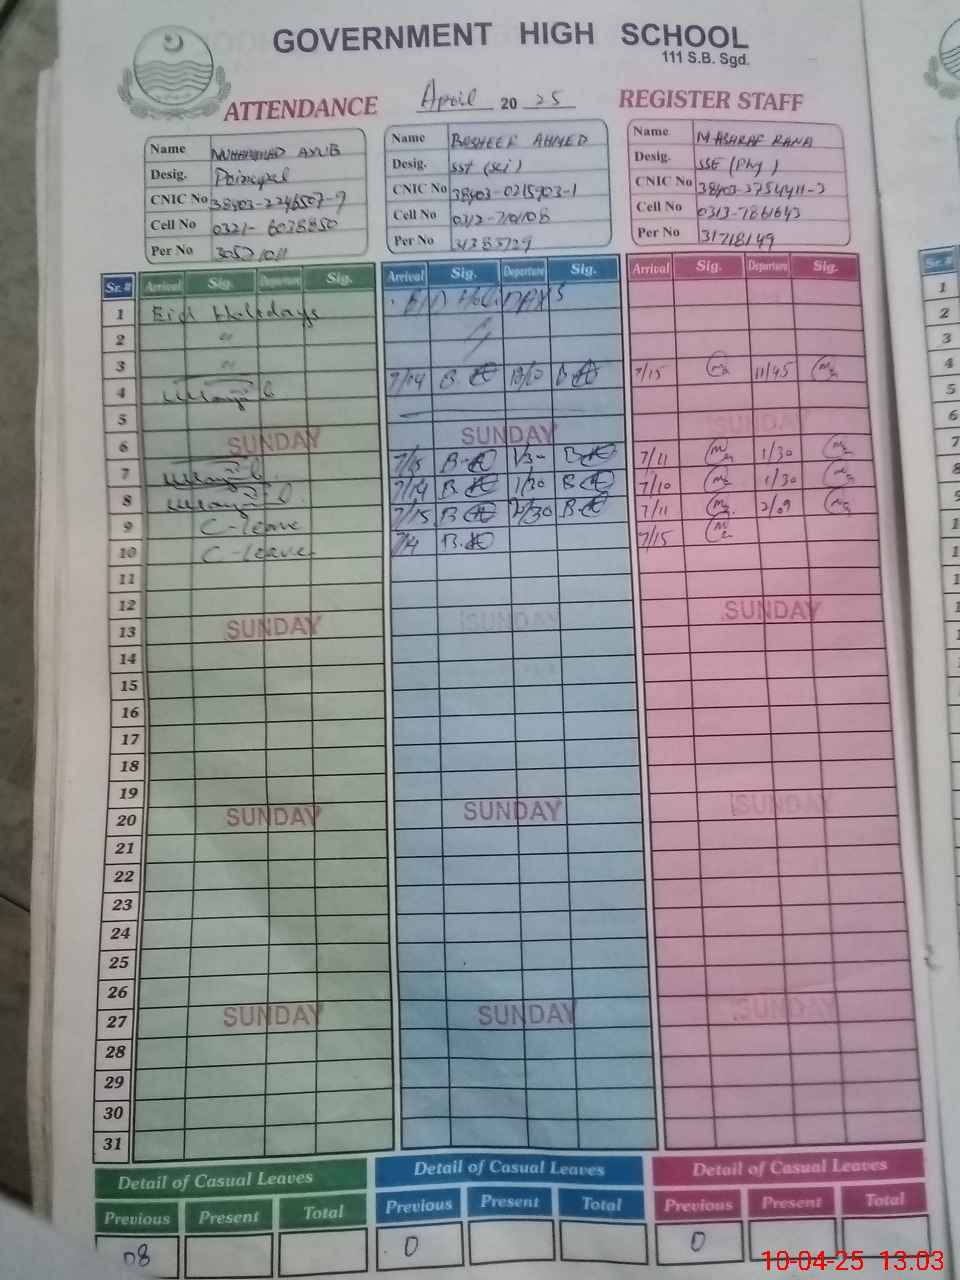 GOVERNMENT HIGH SCHOOL
111 S.B. Sgd.
ATTENDANCE April 20 25 REGISTER STAFF
Name MUHAMMAD AYUB
Desig. Principal
CNIC No 38403-2246507-7
Cell No 0321-6038850
Per No
Name BASHEER AHMED
Desig. SST (Sci)
CNIC No 38403-0215903-1
Cell No
Per No
Name M ASHRAF RANA
Desig. SSE (Phy)
CNIC No 38403-2754411-3
Cell No 0313-7861643
Per No 31718149
Sr. # Arrival Sig. Departure Sig. Arrival Sig. Departure Sig. Arrival Sig. Departure Sig.
1 Eid Holidays EID HOLIDAYS
2 "
3 "
4 7/14 7/15 11/45
5
6 SUNDAY SUNDAY SUNDAY
7 7/15 1/30 7/11 1/30
8 7/14 1/30 7/10 1/30
9 C-leave 7/15 2/30 7/11 2/09
10 C-leave 7/15
11
12
13 SUNDAY SUNDAY SUNDAY
14
15
16
17
18
19
20 SUNDAY SUNDAY SUNDAY
21
22
23
24
25
26
27 SUNDAY SUNDAY SUNDAY
28
29
30
31
Detail of Casual Leaves Detail of Casual Leaves Detail of Casual Leaves
Previous Present Total Previous Present Total Previous Present Total
08 0 0
10-04-25 13.03